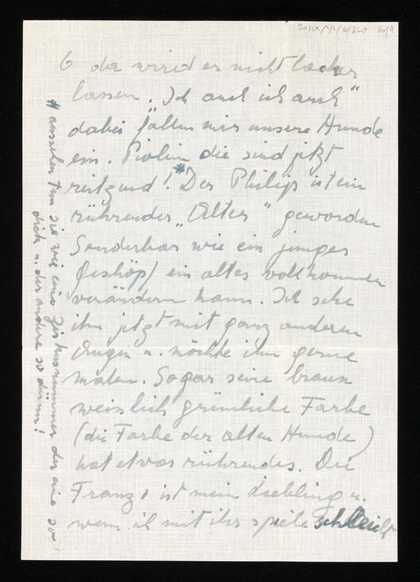 6 da wird es nicht locker
lassen „Ich auch ich auch"
dabei fallen mir unsere Hunde
ein. die sind jetzt
reitzend! * Der Philip ist ein
rührender „Alter" geworden
Sonderbar wie ein junges
Geshöpf ein altes vollkommen
verändern kann. Ich sehe
ihn jetzt mit ganz anderen
Augen u. möchte ihn gerne
malen. Sogar seine braun
weislich grünliche Farbe
(die Farbe der alten Hunde)
hat etwas rührendes. Die
Franzi ist mein Liebling u.
wenn ich mit ihr spiele schleicht
* aussehen tun sie wie eine Zirkusnummer der eine so
dick u. der andere so dünn!